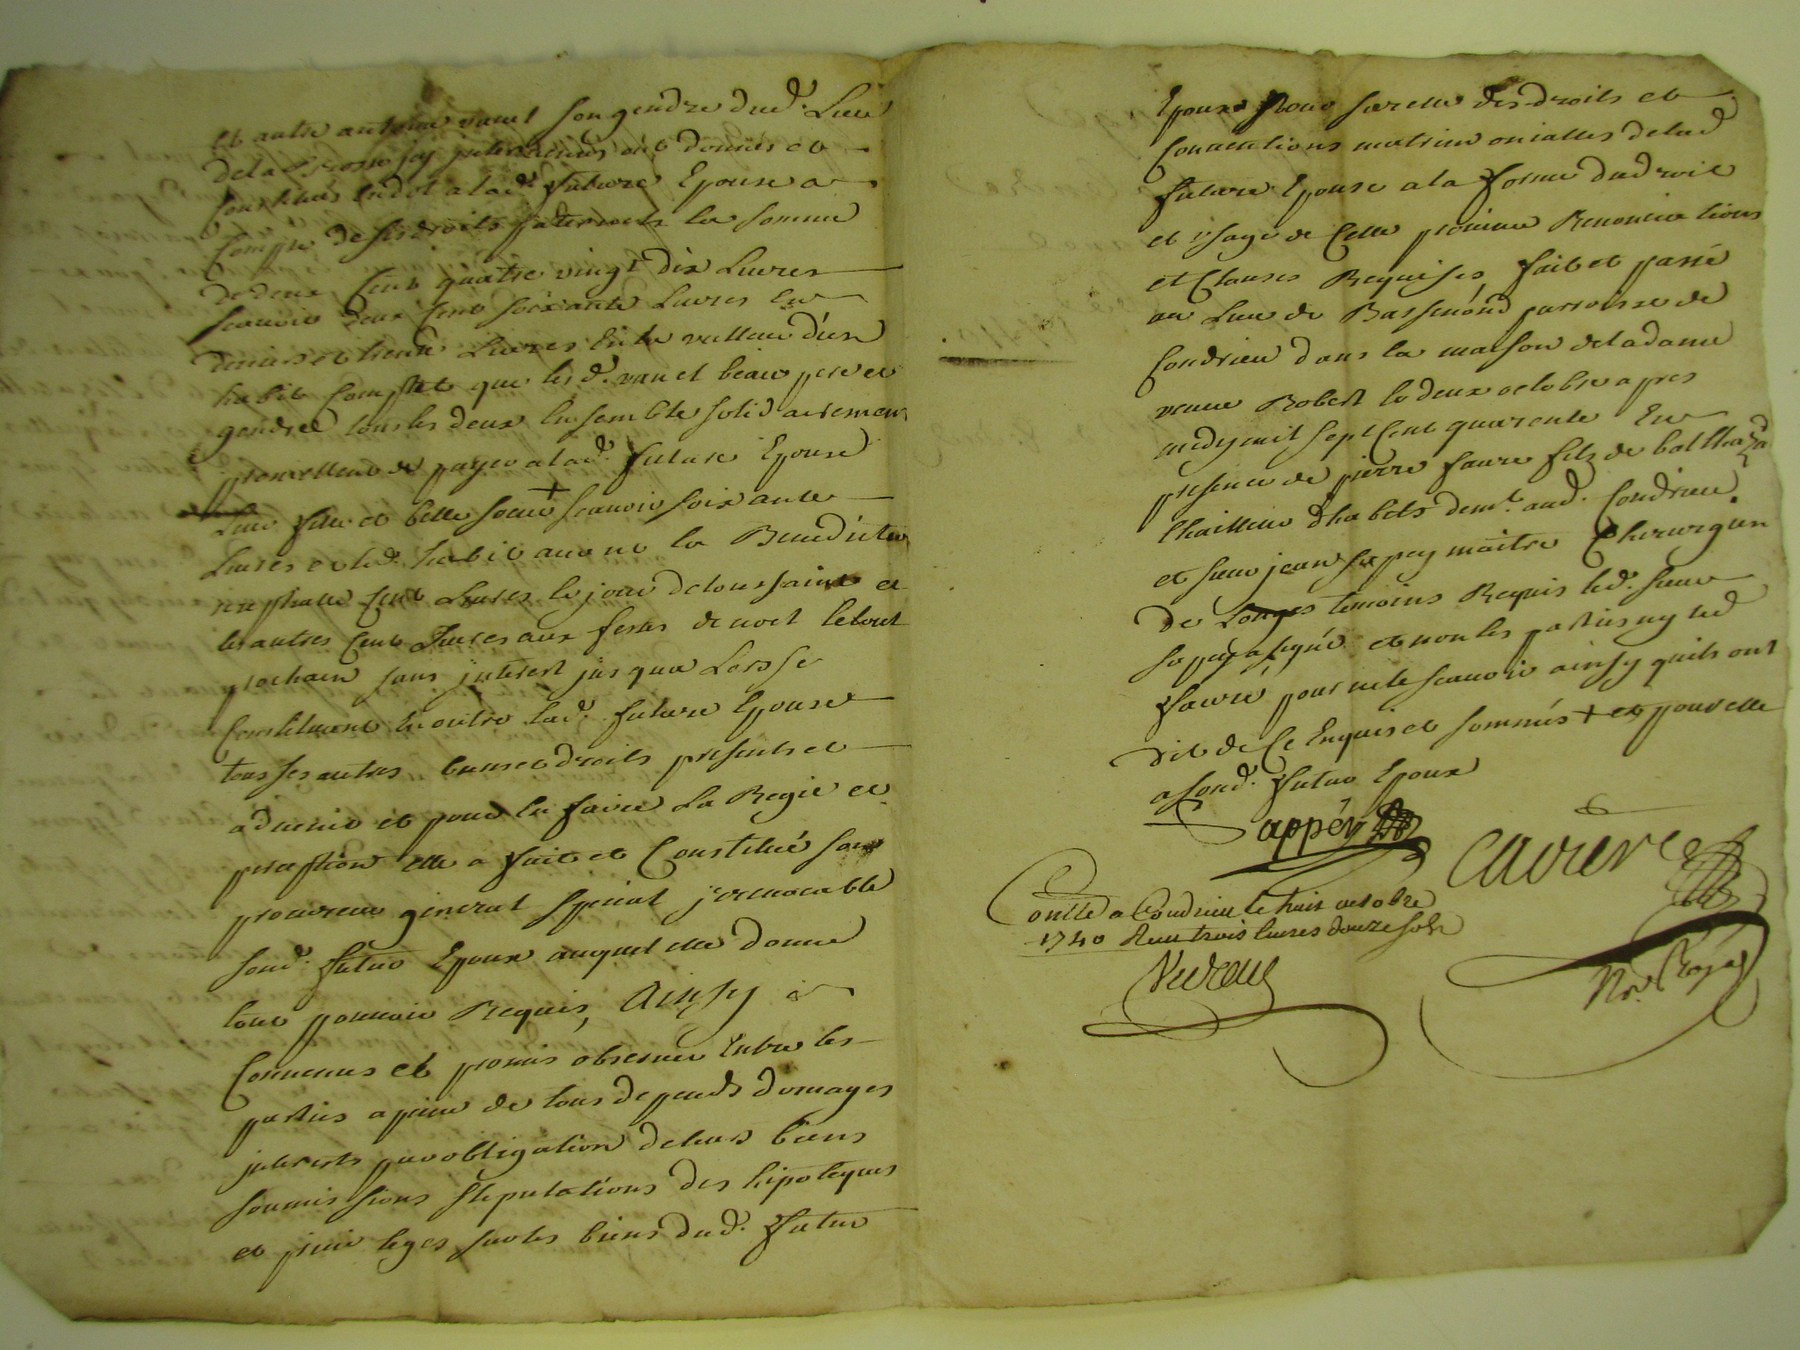 et autre antoine vanel son gendre dud. Lieu
de la Brosse jcy intervenus ont donnés et
Constitués en dot a lad. future Epouse a
Compte de ses droits paternels la somme
de deux Cent quatre vingt dix Livres
scauoir deux Cent soixante Livres en
deniers et trente Livres En la valleur d'un
habit Complet que lesd. vanel beau pere et
gendre tous les deux Ensemble solidairement
promettent de payer a lad. future Epouse
Leur fille et belle soeur + scauoir soixante
Livres et led. habit auant la Benediction
nuptialle Cent Liures le jour de toussaints et
les autres Cent Liures aux festes de noel le tout
prochain sans jnterest jusqua Lors se
Constituant En outre lad. future Epouse
tous ses autres biens et droits presents et
aduenir et pour En faire La Regie et
perception elle a fait et Constitué son
procureur general special jrreuocable
sond. futur Epoux auquel elle donne
tout pouuoir Requis, Ainsy
Conuenus et promis obseruer Entre les
parties a peine de tous depends domages
jnterests par obligation de leurs biens
soumissions stipulations des hipoteques
et priuileges sur les biens dud. futur
Epoux pour sureté des droits et
Conuentions matrimonialles de lad
future Epouse a la forme du droit
et vsage de Cette prouince Renonciations
et Clauses Requises, fait et passé
au Lieu de Bassenond parroisse de
Condrieu dans la maison de la dame
veuue Robert le deux octobre apres
midy mil sept Cent quarente En
presence de pierre faure fils de balthazard
thailleur d'habits demt. aud. Condrieu
et sieur jean sapey maitre Chirurgien
de Longes temoins Requis led. sieur
sapey a signé et non les parties ny led
faure pour ne le scauoir ainsy quils ont
dit de Ce Enquis et sommés + et pour elle
a sond. futur Epoux
Sappéy
Cauiere
Nre. Royal
Conllé a Condrieu le huit octobre
1740 Receu trois liures douze sols